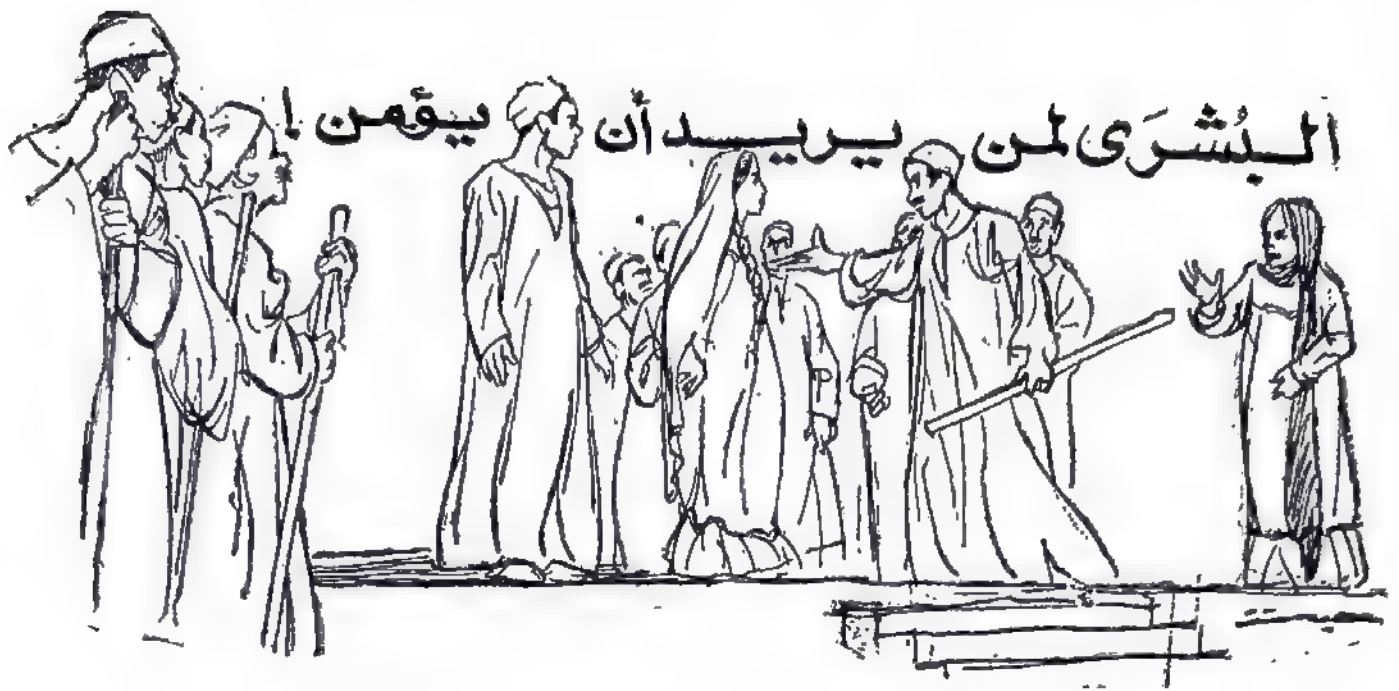 البُشْرَى لمن يريد أن يؤمن !